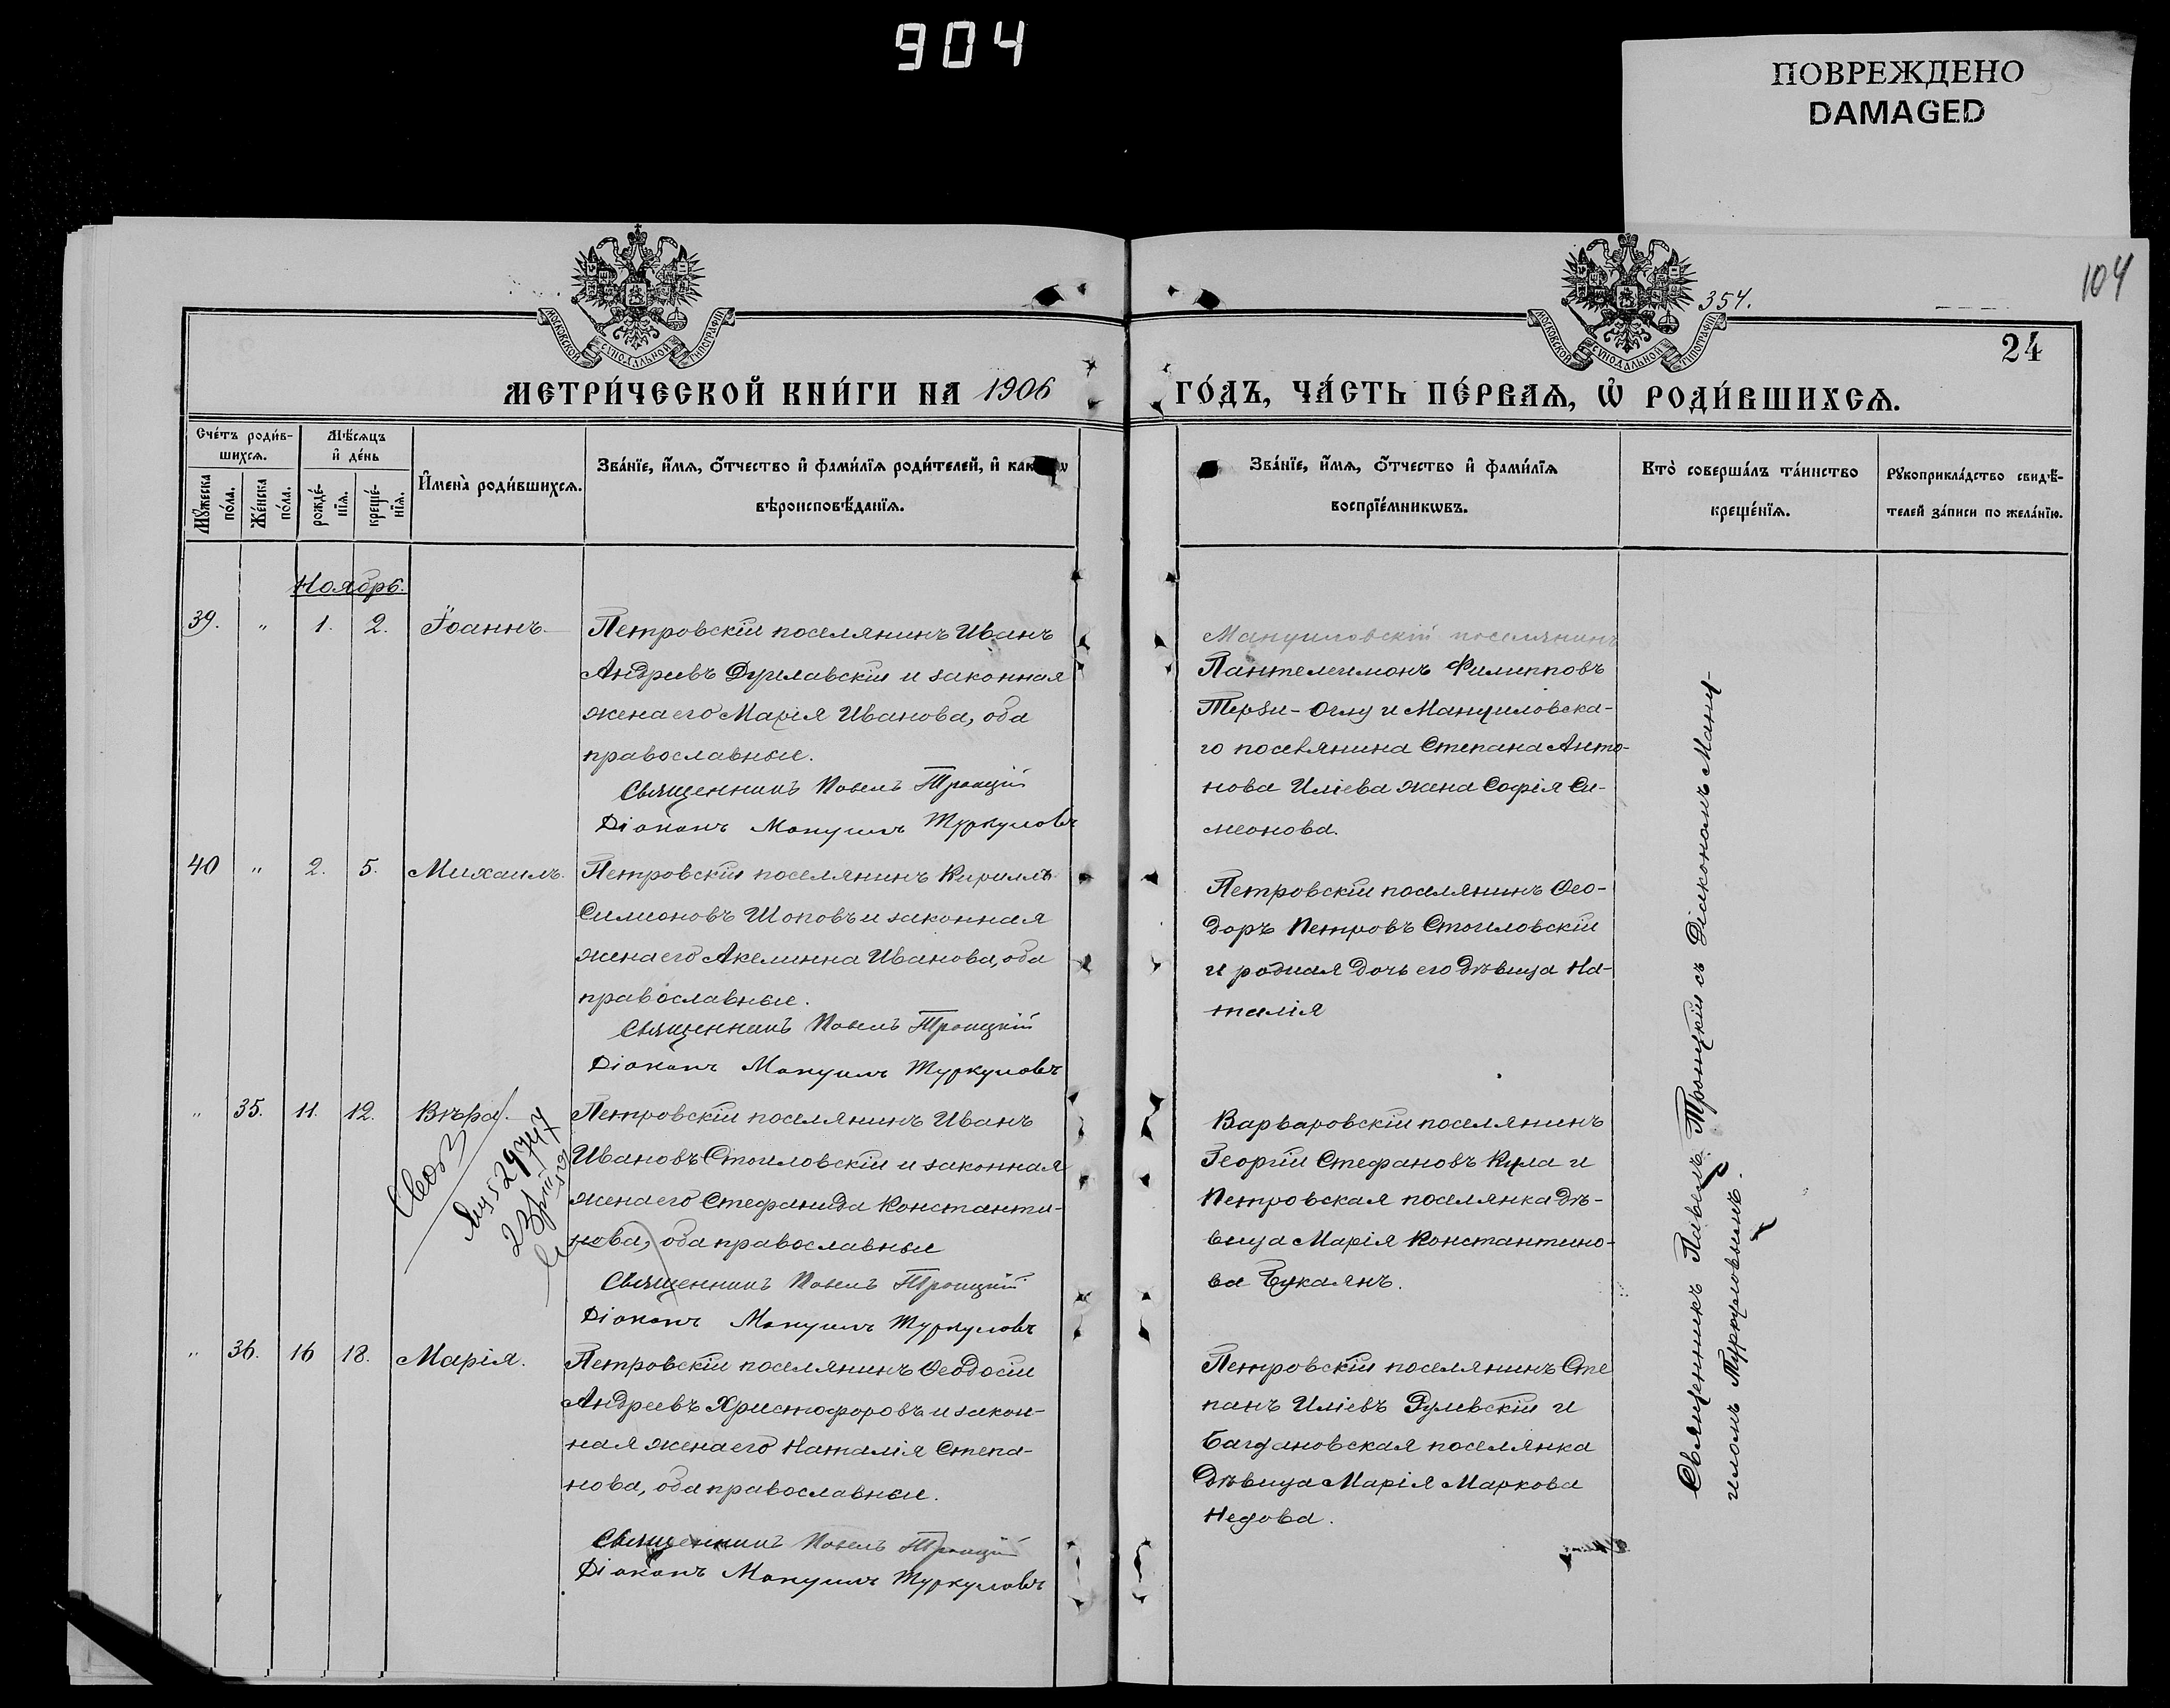 904
ПОВРЕЖДЕНО
DAMAGED
104
354.
24
МОСКОВСКОЙ СѴНОДАЛЬНОЙ ТИПОГРАФІИ
МОСКОВСКОЙ СѴНОДАЛЬНОЙ ТИПОГРАФІИ
МЕТРИ́ЧЕСКОЙ КНИ́ГИ НА 1906
ГО́ДЪ, ЧА́СТЬ ПЕ́РВАѦ, Ѡ҆ РОДИ́ВШИХСѦ.
Сче́тъ роди́в-
шихсѧ.
Мꙋ́жеска по́ла.
Же́нска по́ла.
Мѣ́сѧцъ
и҆ де́нь
рожде́-
нїѧ.
креще́-
нїѧ.
И҆мена̀ роди́вшихсѧ.
Зва́нїе, и҆́мѧ, ѻ҆́тчество и҆ фами́лїѧ роди́телей, и҆
вѣроисповѣ́данїѧ.
Зва́нїе, и҆́мѧ, ѻ҆́тчество и҆ фами́лїѧ
воспрїе́мникѡвъ.
Кто̀ соверша́лъ та́инство
креще́нїѧ.
Рꙋкоприкла́дство свидѣ́-
телей за́писи по жела́нїю.
Ноябрь.
39. " 1. 2. Іоаннъ.
Петровскій поселянинъ Иванъ
Андреевъ и законная
жена его Марія Иванова, оба
православные.
Священникъ Павелъ Троицкій
Діаконъ Мануилъ Туркуловъ
Мануиловскій поселянинъ
Пантелеимонъ Филипповъ
Терзи-Оглу и Мануиловска-
го поселянина Степана Анто-
нова Иліева жена Софія Си-
меонова.
40 " 2. 5. Михаилъ.
Петровскій поселянинъ Кириллъ
Симионовъ Шоповъ и законная
жена его Акелинна Иванова, оба
православные.
Священникъ Павелъ Троицкій
Діаконъ Мануилъ Туркуловъ
Петровскій поселянинъ Ѳео-
доръ Петровъ Стоиловскій
и родная дочь его дѣвица На-
талія
" 35. 11. 12. Вѣра.
Петровскій поселянинъ Иванъ
Ивановъ Стоиловскій и законная
жена его Стефанида Константи-
нова, оба православные
Священникъ Павелъ Троицкій
Діаконъ Мануилъ Туркуловъ
Варваровскій поселянинъ
Георгій Стефановъ Кула и
Петровская поселянка дѣ-
вица Марія Константино-
ва Букаянъ.
" 36. 16 18. Марія.
Петровскій поселянинъ Ѳеодосій
Андреевъ Христофоровъ и закон-
ная жена его Наталія Степа-
нова, оба православные.
Священникъ Павелъ Троицкій
Діаконъ Мануилъ Туркуловъ
Петровскій поселянинъ Сте
панъ Иліевъ и
Багдановская поселянка
дѣвица Марія Маркова
Недова.
Священникъ Павелъ Троицкій съ Діакономъ Ману-
иломъ Туркуловымъ.